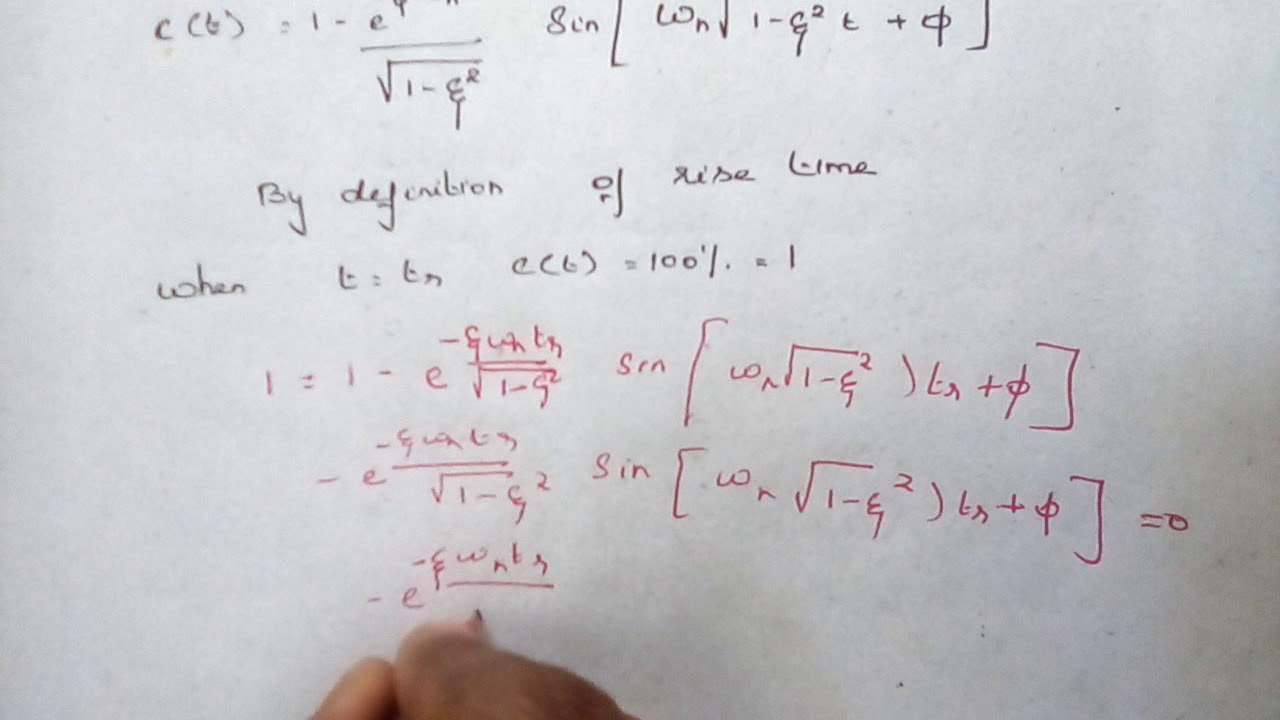 c(t) = 1 - e / √1-ξ² Sin [ ωn√1-ξ² t + φ ]
By definition of rise time
when t = tr c(t) = 100% = 1
1 = 1 - e^-ξωntr / √1-ξ² sin [ ωn√1-ξ² ) tr + φ ]
- e^-ξωntr / √1-ξ² Sin [ ωn √1-ξ² ) tr + φ ] = 0
- e^-ξωntr